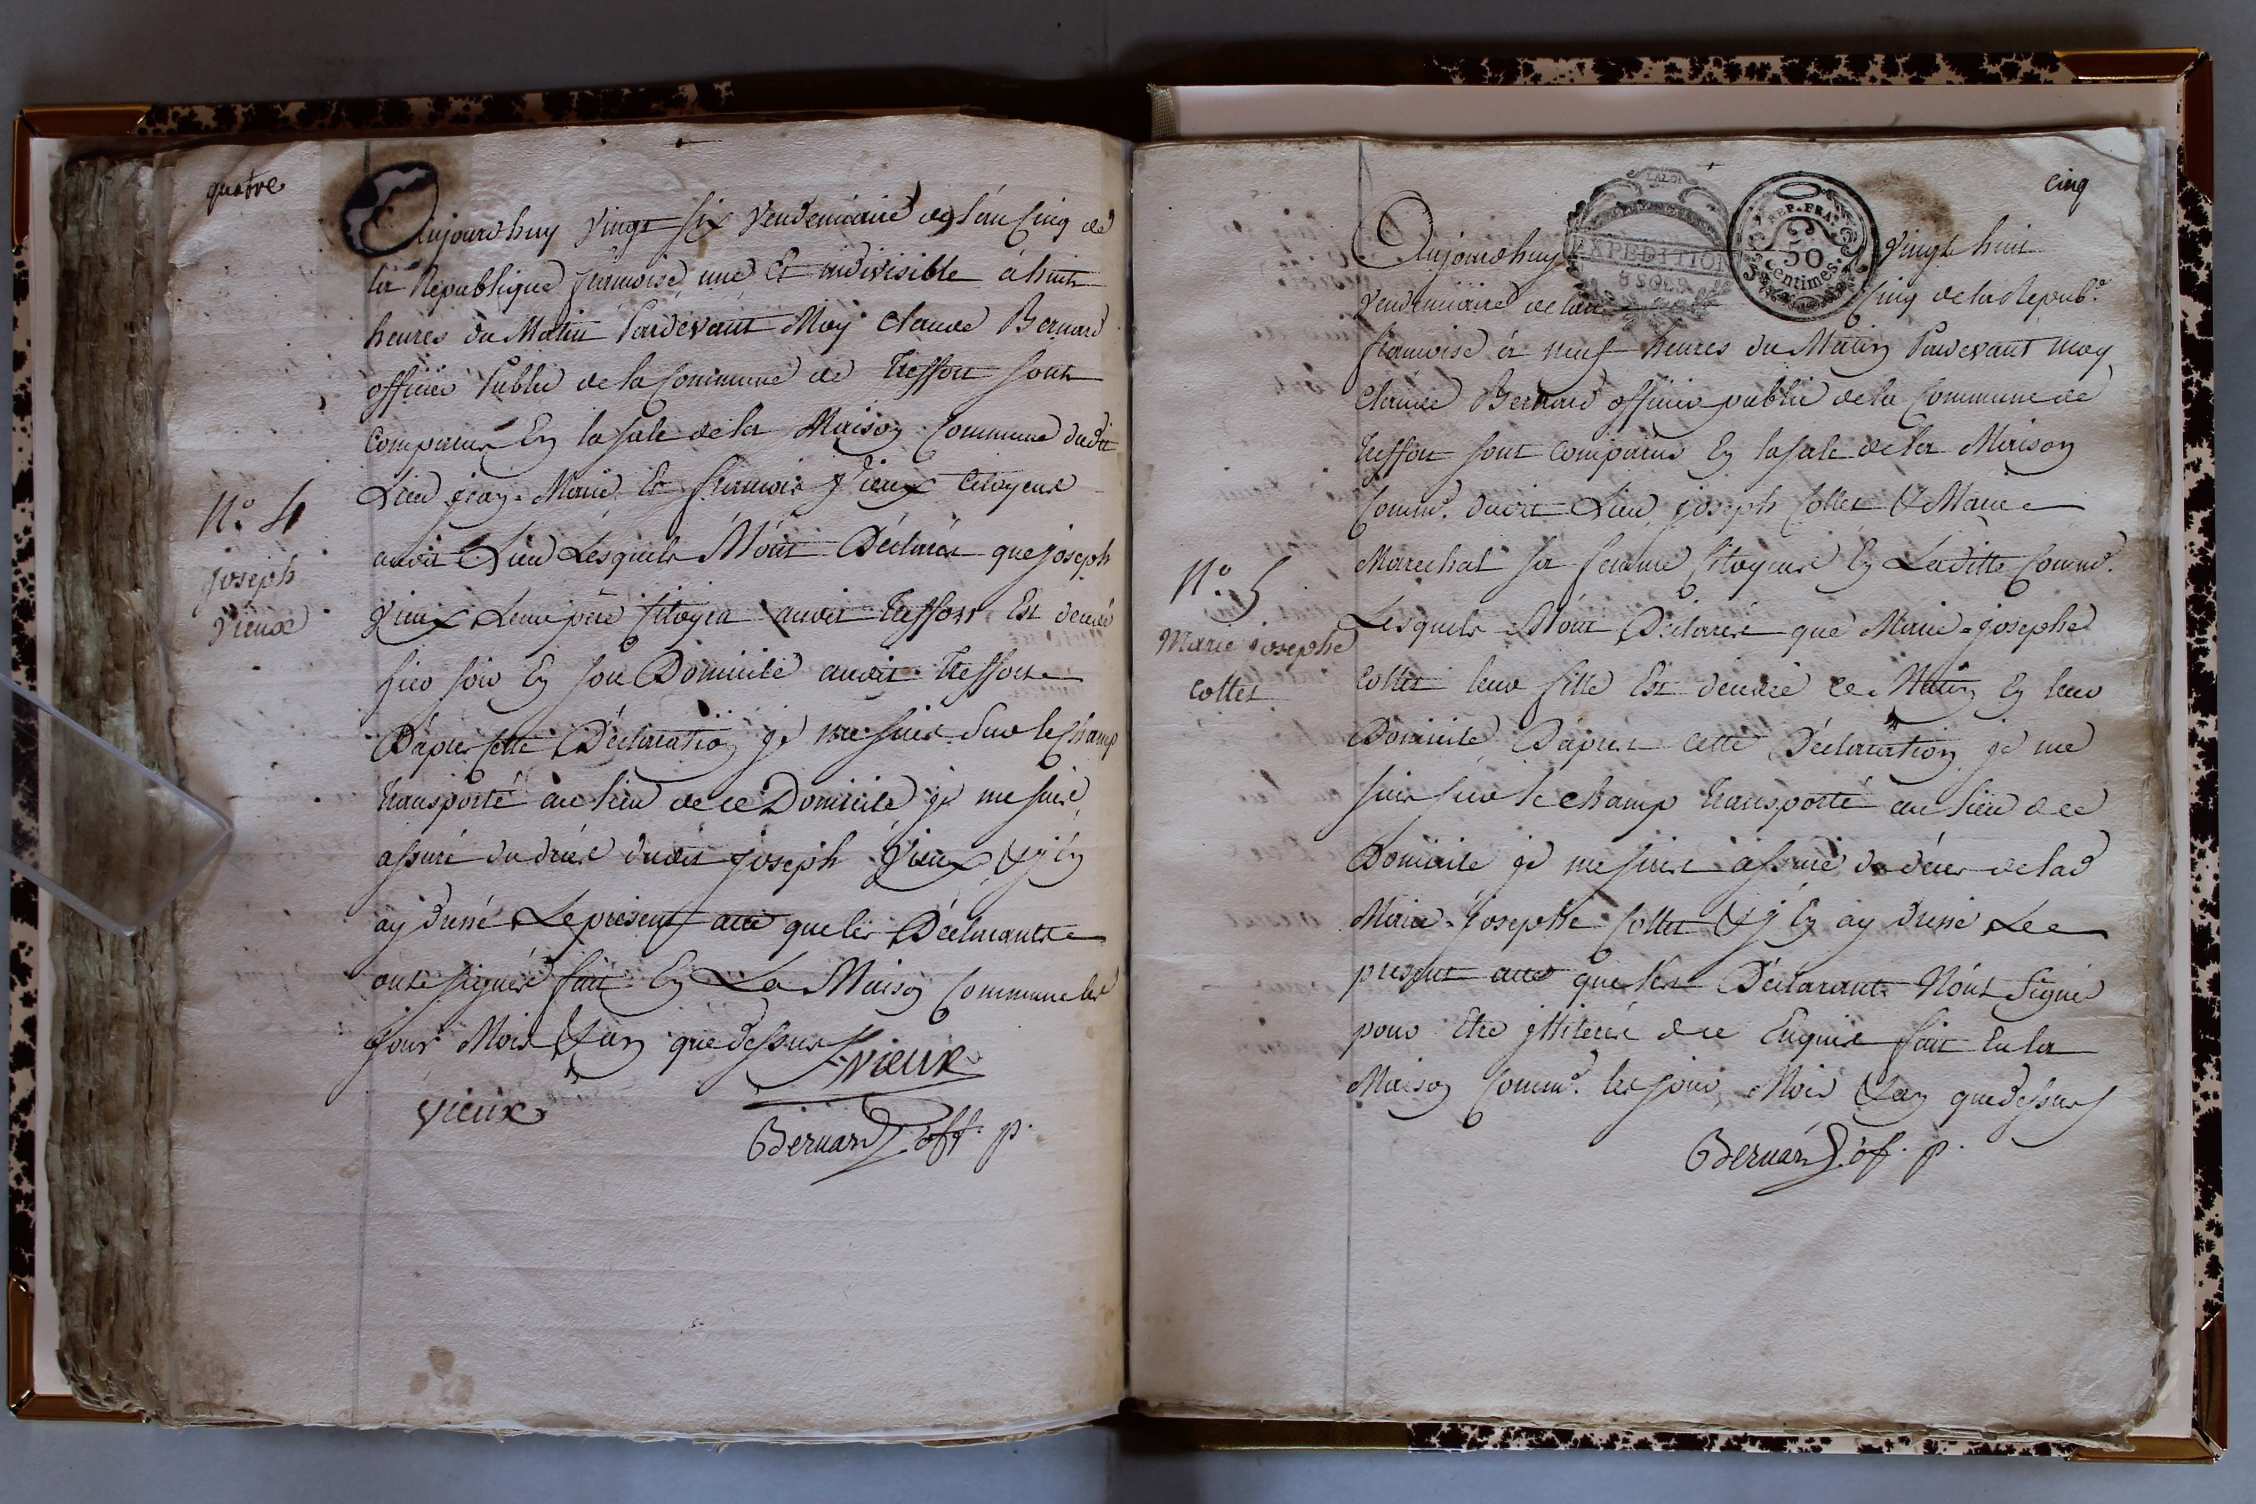 quatre
Aujourdhuy vingt six vendemiaire de l'an cinq de
la Republique francoise une Et indivisible à huit
heures du Matin Pardevant Moy Claude Bernard
officier Public de la Commune de Treffort sont
Comparus En la sale de la Maison Commune dudit
Lieu jean-Marie Et francois Vieux Citoyens
audit Lieu Lesquels M'ont Déclarés que joseph
Vieux Leur père Citoyen audit Treffort Est décédé
hier soir En son Domicile audit Treffort
D'apres cette Déclaration je me suis Sur le Champ
transporté au lieu de ce Domicile je me suis
assuré du décès dudit joseph Vieux & j'en
ay dressé Le present acte que les Déclarants
ont signés fait En La Maison Commune les
jour Mois & an que Dessus
N.º 4
joseph
Vieux
Vieux
vieux
Bernard off. p.
cinq
EXPEDITION
8 SOLS
REP. FRA.
50
centimes
Aujourdhuy vingt huit
Vendemiaire de l'an Cinq de la Repub.e
francoise à neuf heures du Matin Pardevant moy
Claude Bernard officier public de la Commune de
Treffort sont Comparus En la sale de la Maison
Comm.e dudit Lieu joseph Collet & Marie
Marechal sa femme Citoyens En Laditte Comm.e
Lesquels M'ont Déclarés que Marie-josephe
Collet leur fille Est décédée ce Matin En leur
Domicile D'apres cette Déclaration je me
suis sur le champ transporté au lieu de ce
Domicile je me suis assuré du décès de lad
Marie-Josephe Collet & j'En ay dressé Le
present acte que les Déclarants N'ont Signé
pour Etre jllitérés de ce Enquis fait En la
Maison Comm.e les jour Mois & an que Dessus
N.º 5
Marie josephe
Collet
Bernard off. p.